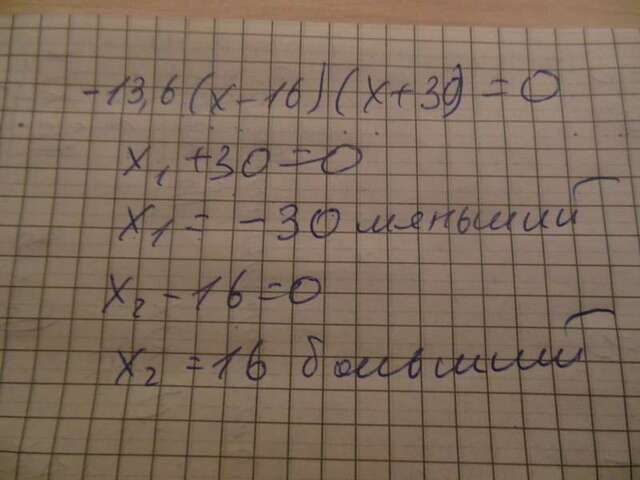 -13,6(x-16)(x+30)=0
x₁+30=0
x₁=-30 мяньший
x₂-16=0
x₂=16 больший